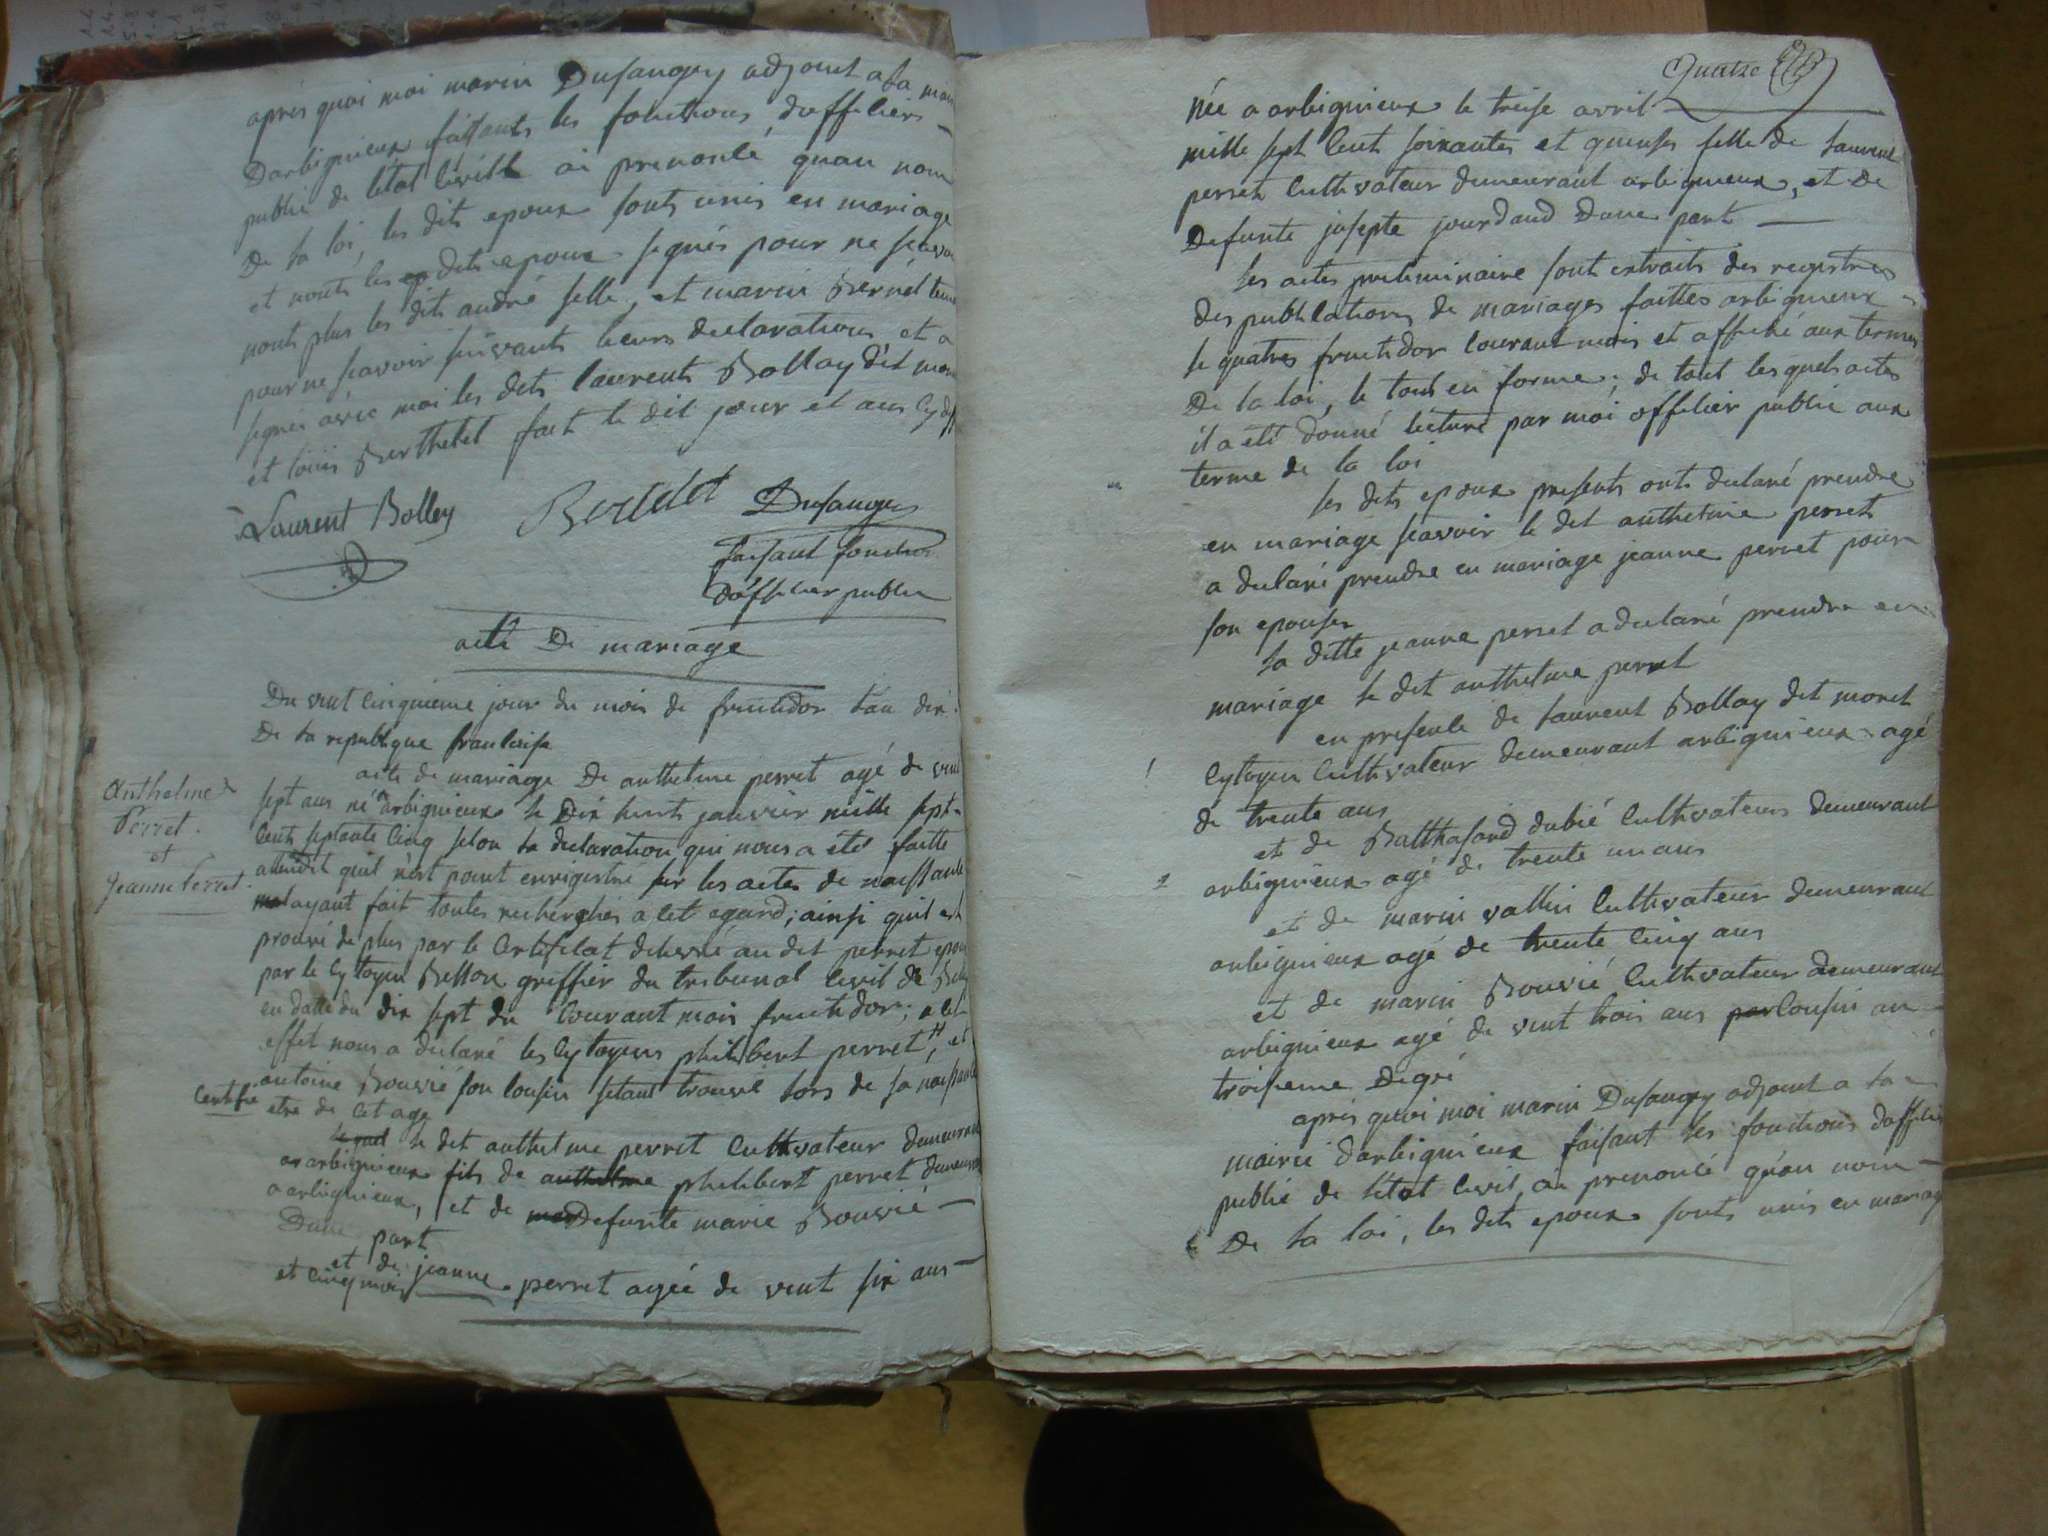 après quoi moi marin Dusaugey adjoint a la mairie
Darbignieux faissants les fonctions dofficiers
public de létat civille ai prenoncé quau nom
De la loi, les dits epoux sonts unis en mariage
et nonts les dits epoux signés pour ne scavoi
nont plus les dits andré selle, et marin Bernel
pour ne scavoir suivants leurs declarations et a
signés avec moi les dits laurents Bollay dit mor
et loüis Berthelet fait le dit jour et ans
Laurent Bolley
Dusaugey
faisant fonction
dófficier public
acte De mariage
Du vint cinquieme jour du mois de fructidor lan dix
De la republique francaise
acte de mariage De anthelme perret agé de vint
sept ans né arbignieux le Dix huit janvier mille sept
cents septante cinq selon la declaration qui nous a été faitte
attendut quil n'est point enrigistré sur les actes de naissance
ayant fait toutes recherches a cet egard; ainsi quil est
prouvé de plus par le certificat delivré au dit perret epoux
par le Cytoyen Besson greffier du tribunal civil de
en datte du dix sept du courant mois fructidor, a cet
effet nous a declaré les Cytoyens philibert perret, et
antoine Bouvié son cousin setant trouvé lors de sa naissance
etre de cet age
le dit anthelme perret cultivateur demeurant
arbignieux fils de anthelme philibert perret demeurant
a arbignieux, et de defunte marie Bouvié
Dune part
et de jeanne perret agée de vint six ans
et cinq mois
Anthelme
Perret
et
Jeanne Perret
Certifie
Quatre
née a arbignieux le treise avril
mille sept cents soixantes et quense fille de laurent
perret cultivateur demeurant arbignieux, et De
Defunte josepte jourdand Dune part
les actes preliminaire sont extraits des registres
des publications de mariages faittes arbignieux
le quatres fructidor courant mois et affiché aux termes
De la loi, le tout en forme; de tout lesquels actes
il a eté donné lecture par moi officier public aux
terme de la loi
les dits epoux presents onts declaré prendre
en mariage scavoir le dit anthelme perret
a declaré prendre en mariage jeanne perret pour
son epouse
la ditte jeanne perret a declaré prendre en
mariage le dit anthelme perret
en presence de laurent Bollay dit moret
Cytoyen cultivateur demeurant arbignieux agé
de trente ans
et de Balthasard dubié cultivateur demeurant
arbignieux agé de trente un ans
et de marin vallin cultivateur demeurant
arbignieux agé de trente cinq ans
et de marin Bouvié cultivateur demeurant
arbignieux agé de vint trois ans par cousin au
troisieme degré
après quoi moi marin Dusaugey adjoint a la
mairie darbignieux faisant les fonctions dofficier
public de létat civil, ai prenoncé quau nom
De la loi, les dits epoux sonts unis en mariage